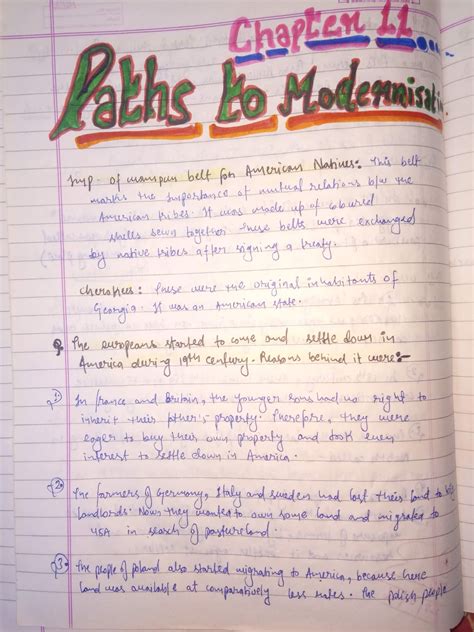 Chapter 11....
Paths to Modernisati
Imp. of wampum belt for American Natives:- This belt
marks the importance of mutual relations b/w the
American tribes. It was made up of coloured
shells sewn together. These belts were exchanged
by native tribes after signing a treaty.
Cherokees: These were the original inhabitants of
Georgia. It was an American state.
Q. The europeans started to come and settle down in
America during 19th century. Reasons behind it were:-
1) In france and Britain, the younger sons had no right to
inherit their father's property. Therefore, they were
eager to buy their own property and took keen
interest to settle down in America.
2. The farmers of Germany, Italy and sweden had lost their land to
landlords. Now they wanted to own some land and migrated to
USA in search of pastureland.
3. The people of poland also started migrating to America, because here
land was available at comparatively less rates. The polish people